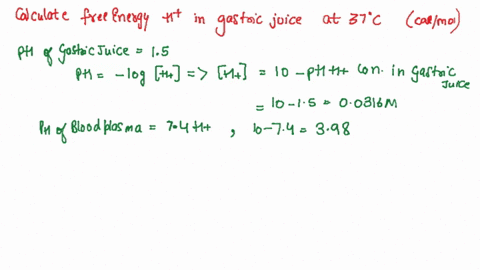 Calculate free Energy H+ in gastric juice at 37°C (cal/mol)
PH of Gastric Juice = 1.5
PH = -log [H+] => [H+] = 10 - PH H+ Con. in Gastric Juice
= 10 - 1.5 = 0.0316M
PH of Blood plasma = 7.4 H+ , 10 - 7.4 = 3.98